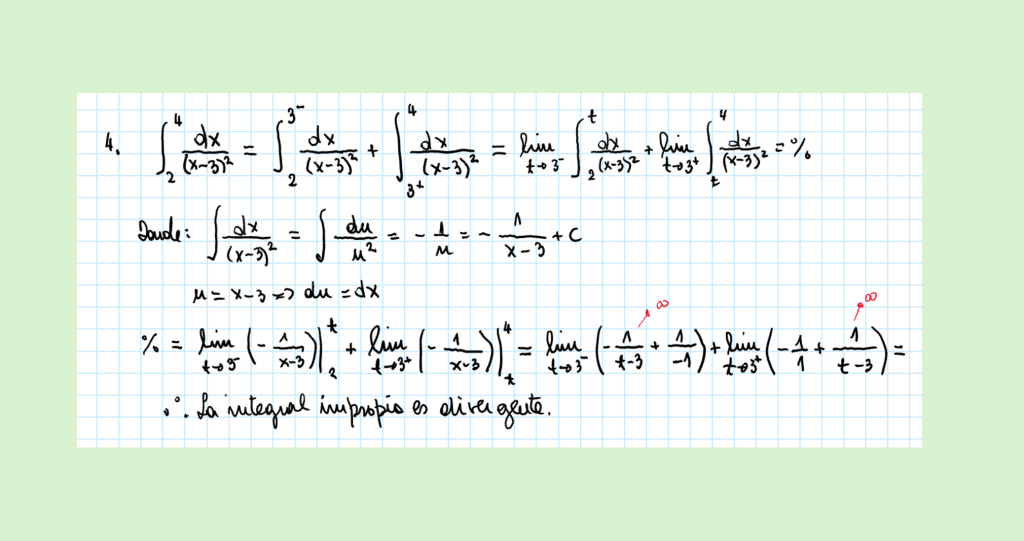 4. ∫₂⁴ dx/(x-3)² = ∫₂^3⁻ dx/(x-3)² + ∫_3⁺^4 dx/(x-3)² = lim t→3⁻ ∫₂^t dx/(x-3)² + lim t→3⁺ ∫_t^4 dx/(x-3)² = %
Donde: ∫ dx/(x-3)² = ∫ du/u² = - 1/u = - 1/(x-3) + C
u = x-3 => du = dx
% = lim t→3⁻ (- 1/(x-3))|₂^t + lim t→3⁺ (- 1/(x-3))|_t^4 = lim t→3⁻ (- 1/(t-3) + 1/-1) + lim t→3⁺ (- 1/1 + 1/(t-3)) =
∞ ∞
∴ La integral impropia es divergente.